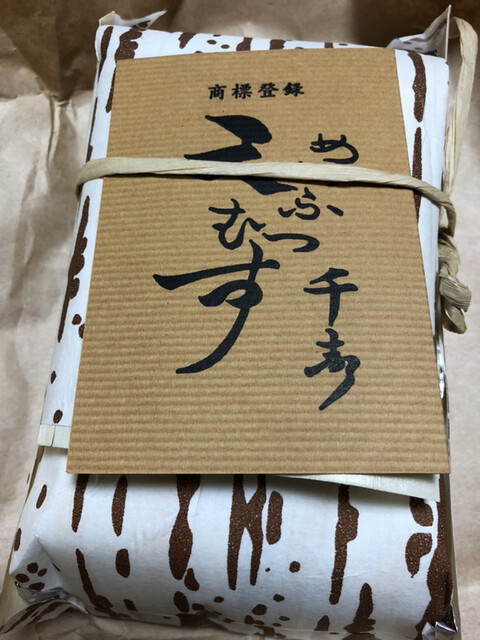 商標登録
めいふつ千寿
天むす